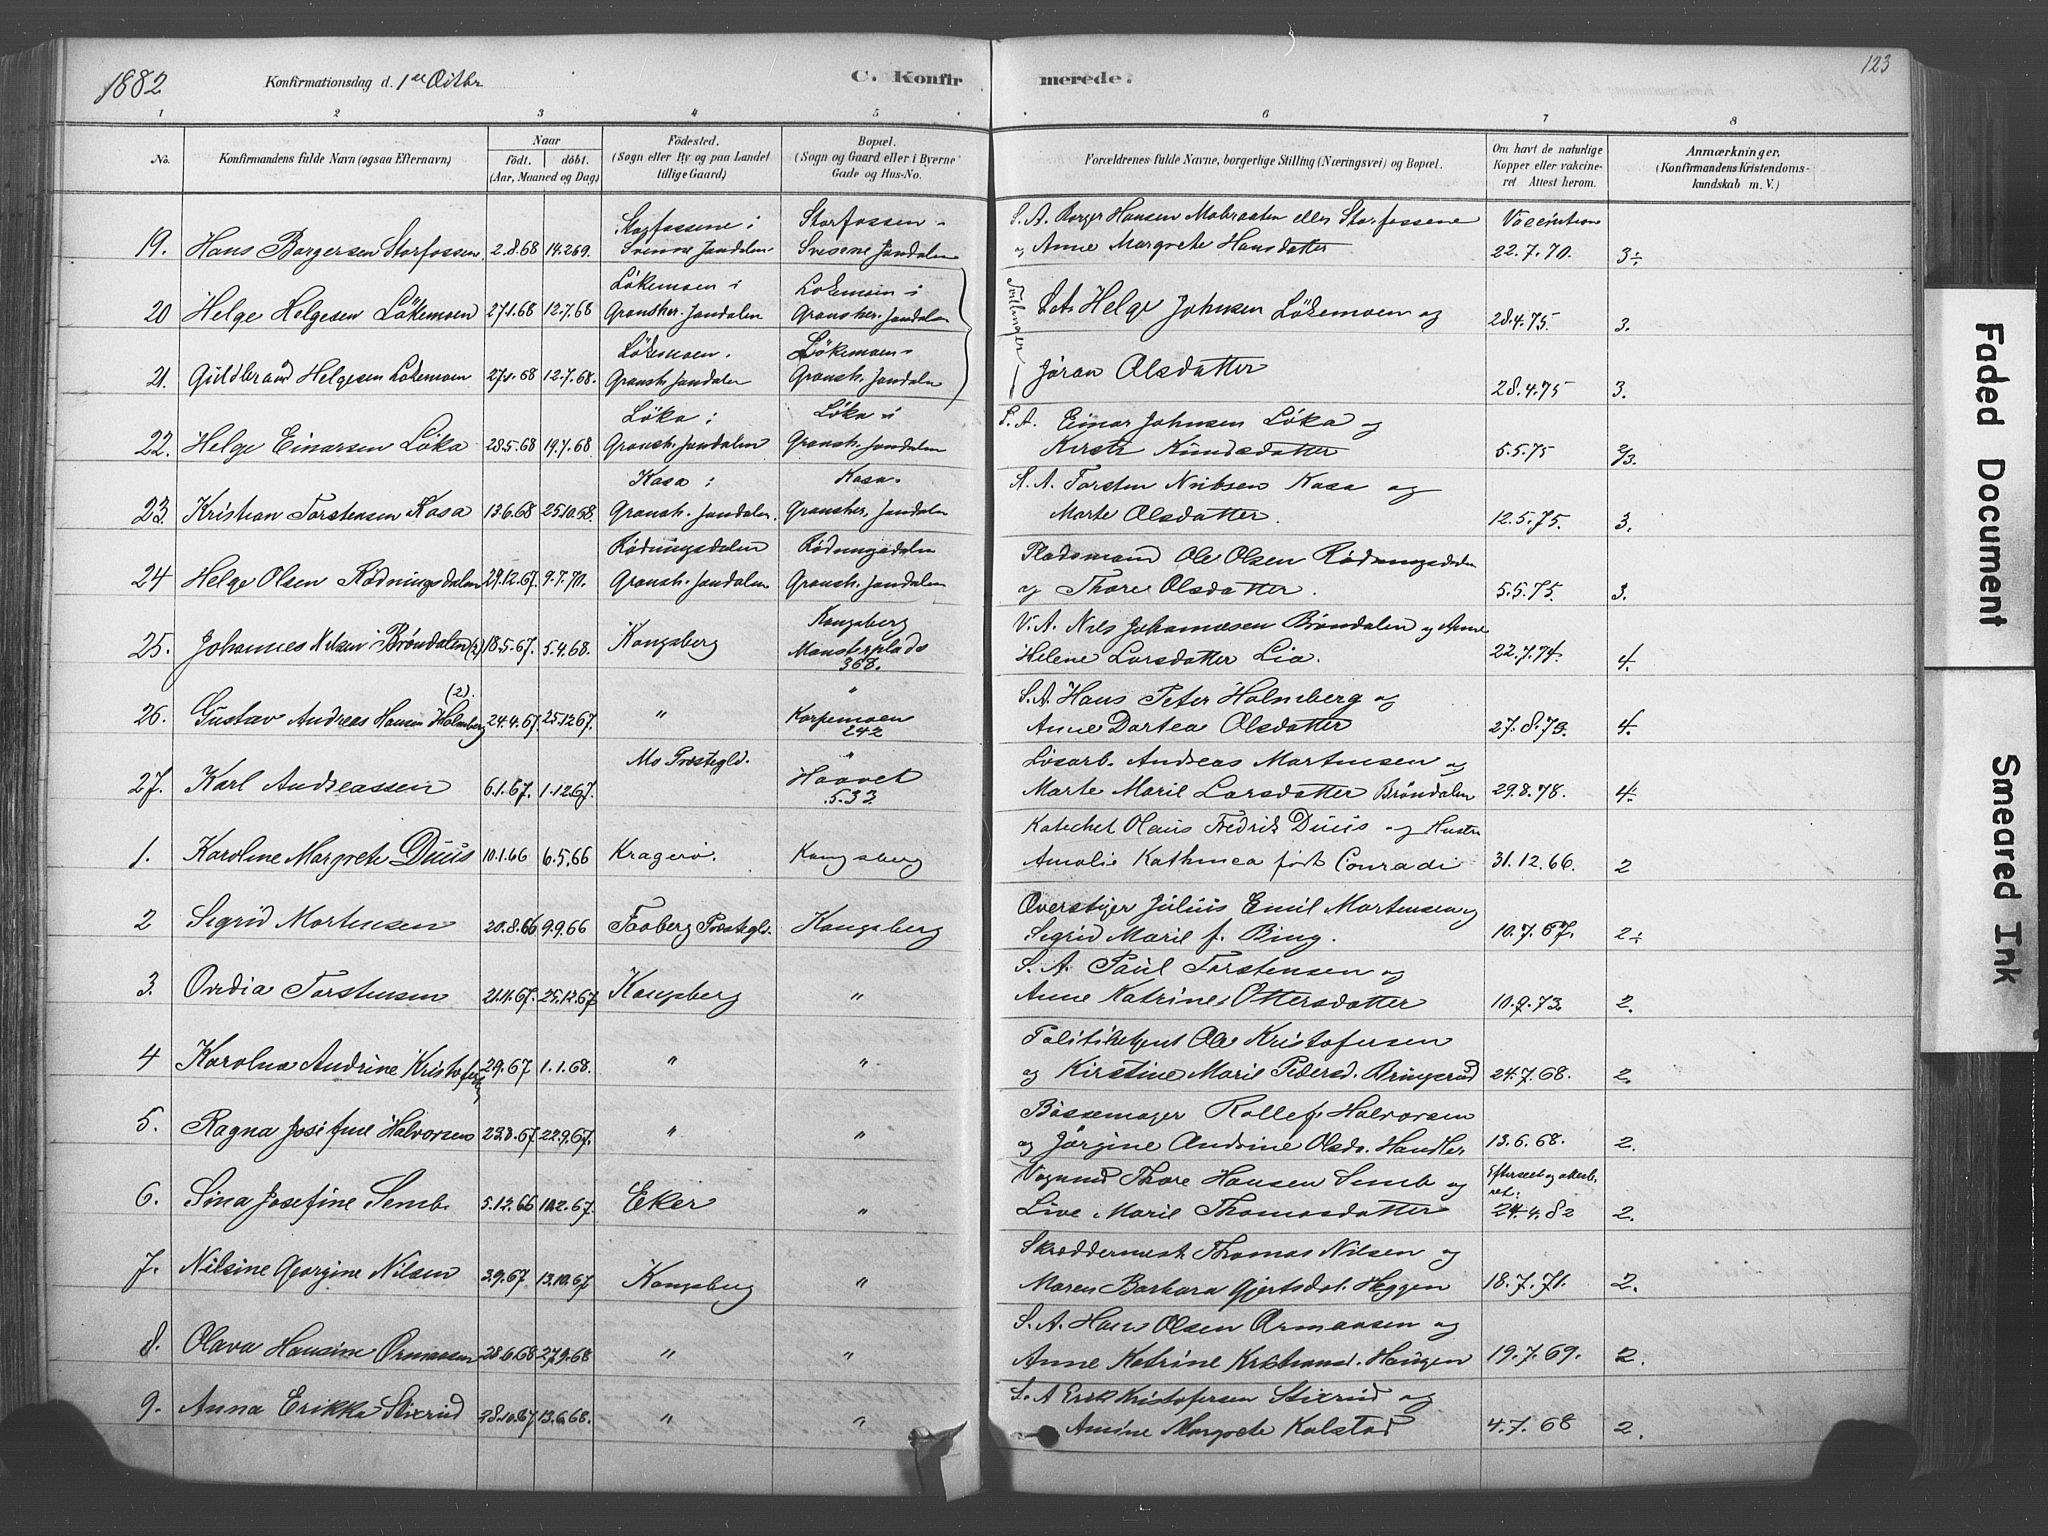 1882 Konfirmationsdag d. 1ste Octbr C. Konfirmerede. 123
1 2 3 4 5 6 7 8
No. Konfirmandens fulde Navn (ogsaa Efternavn) Naar født. døbt. (Aar, Maaned og Dag) Fødested. (Sogn eller By og paa Landet tillige Gaard) Bopæl. (Sogn og Gaard eller i Byerne Gade og Hus-No. Forældrenes fulde Navne, borgerlige Stilling (Næringsvei) og Bopæl. Om havt de naturlige Kopper eller vakcineret Attest herom. Anmærkninger. (Konfirmandens Kristendomskundskab m. V.)
Storfossene i Storfossen S. A. Borger Hansen Mobraaten eller Storfossene
19. Hans Borgersen Storfossene 2.8.68 14.2.69. Svenne Jondalen Svesene Jondalen og Anne Margrete Hansdatter 22.7.70. 3÷
Løkemoen i Lokemoen i
20 Helge Helgesen Løkemoen 27.1.68 12.7.68 Gransher. Jondalen Gransher. Jondalen Tvillinger S. A. Helge Johnsen Løkemoen og 28.4.75. 3.
Løkemoen. Løkemoen
21. Guldbrand Helgesen Løkemoen 27.1.68 12.7.68. Gransh. Jondalen Gransh. Jondalen Jøran Olsdatter 28.4.75 3.
Løka i Løka i S. A. Einar Johnsen Løka og
22. Helge Einarsen Løka 28.5.68 19.7.68 Gransh. Jondalen Gransh. Jondalen Kirsti Knudsdatter 5.5.75 2/3.
Kasa i Kasa. S. A. Torsten Nubsen Kasa og
23. Kristian Torstensen Kasa 13.6.68 25.10.68. Gransh. Jondalen. Gransher. Jondalen Marte Olsdatter. 12.5.75. 3.
Rødningsdalen Rødningsdalen Pladsmand Ole Olsen Rødningsdalen
24 Helge Olsen Rødningsdalen 29.12.67. 9.7.70. Gransh. Jondalen Gransh. Jondalen og Thore Olsdatter. 5.5.75. 3.
Kongsberg V. A. Nils Johannesen Brøndalen og Anne
25. Johannes Nilsen Brøndalen (2) 18.5.67. 5.4.68. Kongsberg Monsterplads 368. Helene Larsdatter Lia. 22.7.74. 4.
(2). " S. A. Hans Peter Holmberg og
26. Gustav Andreas Hansen Holmberg 24.4.67. 25.12.67. " Korpemoen 242 Anne Dortea Olsdatter 27.8.79. 4.
Mo Prestegld. " Løsarb. Andreas Martinsen og
27. Karl Andreassen 6.1.67. 1.12.67. Haavet 533 Marte Marie Larsdatter Brøndalen 29.8.78. 4.
Katechet Hans Fredrik Duus og Hustru
1. Karoline Margrete Duus 10.1.66 6.5.66 Kragerø. Kongsberg Amalie Kathinca født Conradi 31.12.66. 2
Overstiger Julius Emil Mortensen og
2 Sigrid Mortensen 20.8.66 9.9.66 Faaberg Prestegld. Kongsberg Sigrid Marie f. Bing. 10.7.67. 2÷
S. A. Paul Torstensen og
3. Ovidia Torstensen 21.11.67. 25.12.67 Kongsberg " Anne Katrine Ottersdatter 10.9.73 2.
Politibetjent Ole Kristofersen
4 Karoline Andrine Kristofersen 2.9.67 1.1.68. " " og Kirstine Marie Pedersd. Bringerud 24.7.68. 2.
Bøssemager Rollef Halvorsen
5. Ragna Josefine Halvorsen 23.8.67. 22.9.67. " " og Jørgine Andrine Olsd. Handler 13.6.68. 2.
Vognmd Thore Hansen Semb og Efterseet og
6. Sina Josefine Semb. 5.12.66 10.2.67. Eker " Live Marie Thomasdatter 24.4.82 2.
Skræddermest. Thomas Nilsen og
7. Nilsine Georgine Nilsen 3.9.67 13.10.67 Kongsberg " Maren Barbara Gjertsdat. Heggen 18.7.71. 2.
S. A. Hans Olsen Ormaasen og
8. Olava Hansine Ormaasen 28.6.68 27.9.68 " " Anne Katrine Kristiansd. Haugen 19.7.69. 2.
S. A Erik Kristofersen Stixrud og
9. Anna Erikka Stixrud 28.10.67 13.6.68. " " Amine Margrete Kolstad 4.7.68 2.
Faded Document
Smeared Ink